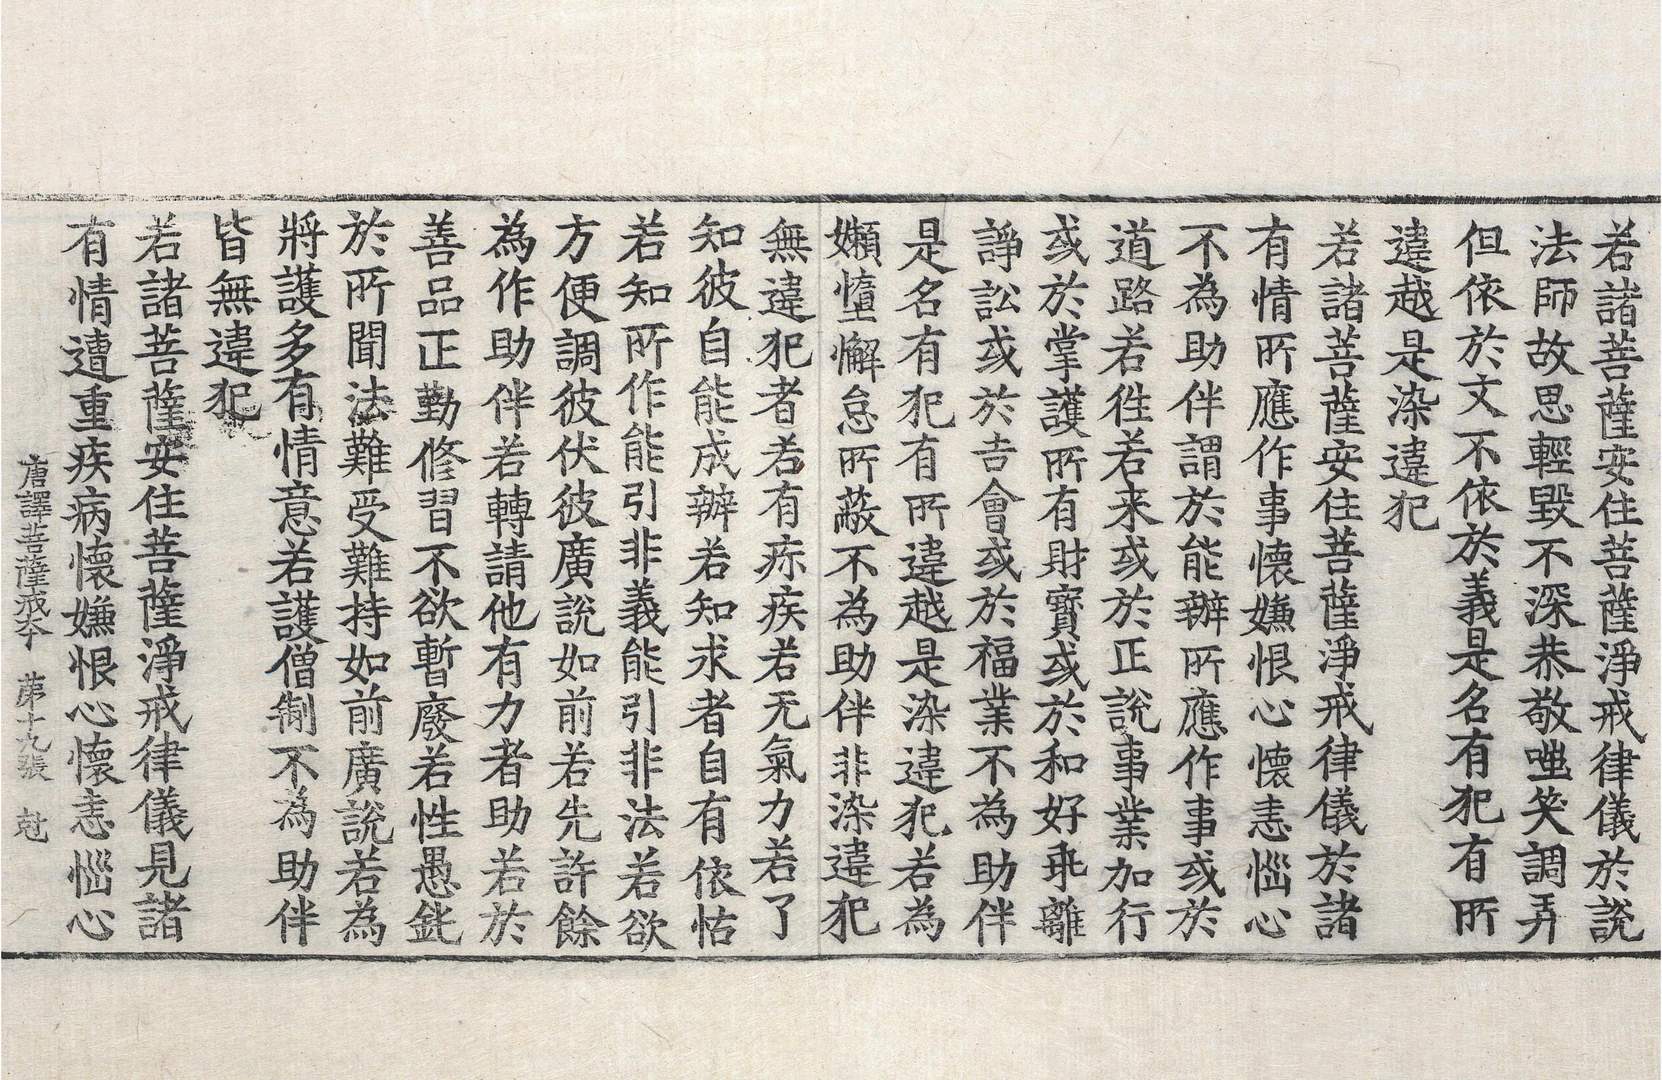 若諸菩薩安住菩薩淨戒律儀於說
法師故思輕毀不深恭敬嗤笑調弄
但依於文不依於義是名有犯有所
違越是染違犯
若諸菩薩安住菩薩淨戒律儀於諸
有情所應作事懷嫌恨心懷恚惱心
不為助伴謂於能辦所應作事或於
道路若徃若来或於正說事業加行
或於掌護所有財寶或於和好乖離
諍訟或於吉會或於福業不為助伴
是名有犯有所違越是染違犯若為
嬾惰懈怠所蔽不為助伴非染違犯
無違犯者若有疹疾若无氣力若了
知彼自能成辦若知求者自有依怙
若知所作能引非義能引非法若欲
方便調彼伏彼廣說如前若先許餘
為作助伴若轉請他有力者助若於
善品正勤修習不欲暫廢若性愚鈍
於所聞法難受難持如前廣說若為
將護多有情意若護僧制不為助伴
皆無違犯
若諸菩薩安住菩薩淨戒律儀見諸
有情遭重疾病懷嫌恨心懷恚惱心
唐譯菩薩戒本　苐十九張　尅